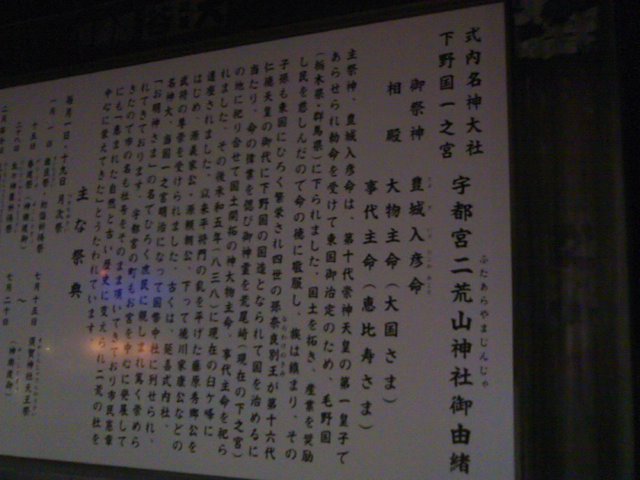 式内名神大社
下野国一之宮
宇都宮二荒山神社御由緒
ふたあらやまじんじゃ
御祭神 豊城入彦命
相殿 大物主命(大国さま)
事代主命(恵比寿さま)
主祭神、豊城入彦命は、第十代崇神天皇の第一皇子で
あらせられ勅命を受けて東国御治定のため、毛野国
(栃木県・群馬県)に下られました。国土を拓き、産業を奨励
し民を慈しんだので命の徳に敬服し、族は鎮まり、その
子孫も東国にひろく繁栄され四世の孫奈良別王が第十六代
仁徳天皇の御代に下野国の国造となられて国を治めるに
当たり、命の偉業を偲び御神霊を荒尾崎(現在の下之宮)
の地に祀り合せて国土開拓の神大物主命、事代主命を祀ら
れました。その後承和五年(八三八)に現在の臼ヶ峰に
遷座されました。以来平将門の乱を平げた藤原秀郷公を
はじめ、源義家公、源頼朝公、下って徳川家康公などの
武将の尊崇を受けられました。古くは、延喜式内社、
名神大、当国一之宮明治になって国幣中社に列せられ、
「お明神さま」の名でひろく庶民に親しまれ篤く崇めら
れてきております。宇都宮の町もお宮を中心に発展して
きたので市の名も社号をそのまま頂いてきており市民憲章
にも「恵まれた自然と古い歴史に支えられ二荒の杜を
中心に栄えてきた」とうたわれています。
主な祭典
毎月一日・十九日 月次祭
一月一日 歳旦祭・初詣祈祷祭
十五日 春渡祭
七月十五日
七月二十日